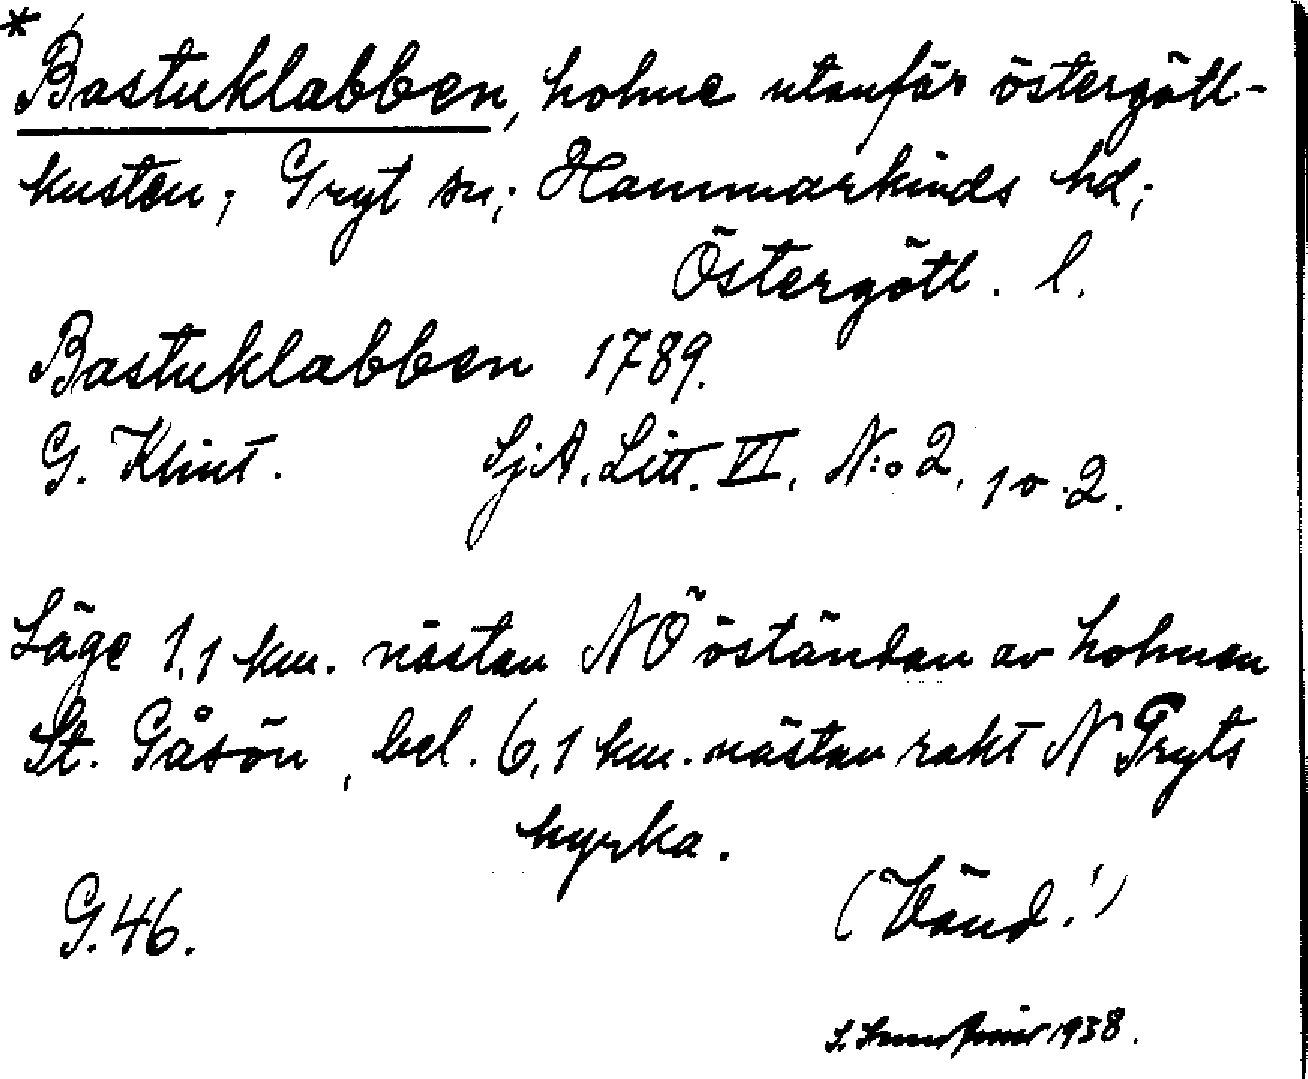 *
Bastuklabben, holme utanför östergötl-
kusten; Gryt sn; Hammarkinds hd;
Östergötl. l.
Bastuklabben 1789.
G. Klint. SjA. Litt. VI, N:o 2, 1 o 2.
Läge 1,1 km. nästan NÖ öständan av holmen
St. Gåsön, bel. 6,1 km. nästan rakt N Gryts
kyrka.
G. 46. (Vänd!)
S. 1938.